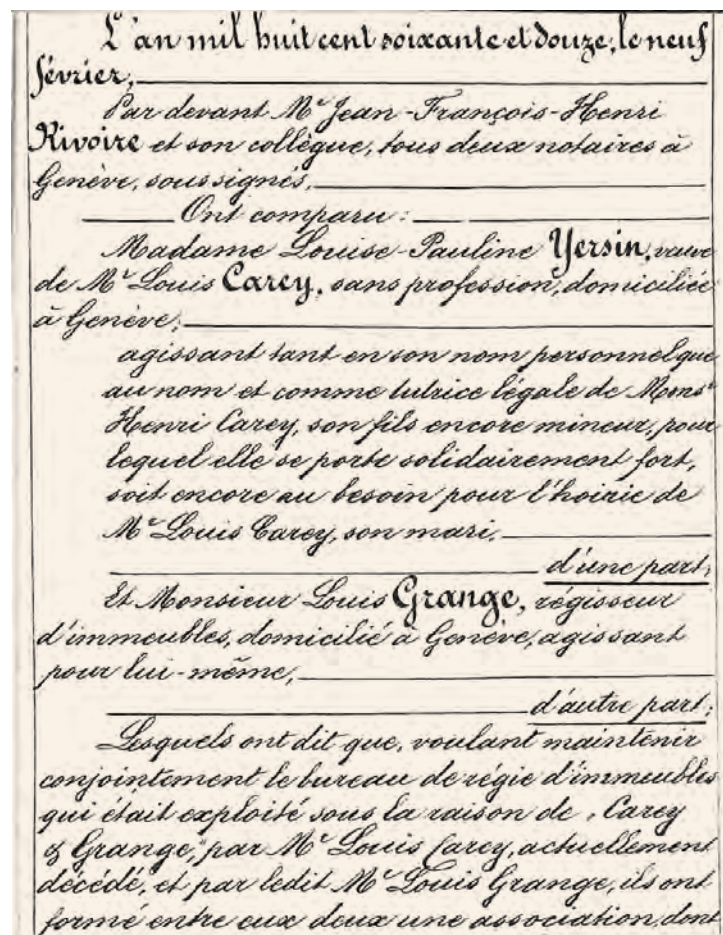 L'an mil huit cent soixante et douze, le neuf
février,
Par devant Mr Jean-François-Henri
Rivoire et son collègue, tous deux notaires à
Genève, soussignés,
Ont comparu :
Madame Louise-Pauline Yersin, veuve
de Mr Louis Carey, sans profession, domiciliée
à Genève,
agissant tant en son nom personnel que
au nom et comme tutrice légale de Monsr
Henri Carey, son fils encore mineur, pour
lequel elle se porte solidairement fort,
soit encore au besoin pour l'hoirie de
Mr Louis Carey, son mari,
d'une part,
Et Monsieur Louis Grange, régisseur
d'immeubles, domicilié à Genève, agissant
pour lui-même,
d'autre part;
Lesquels ont dit que, voulant maintenir
conjointement le bureau de régie d'immeubles
qui était exploité sous la raison de "Carey
& Grange," par Mr Louis Carey, actuellement
décédé, et par ledit Mr Louis Grange, ils ont
formé entre eux deux une association, dont